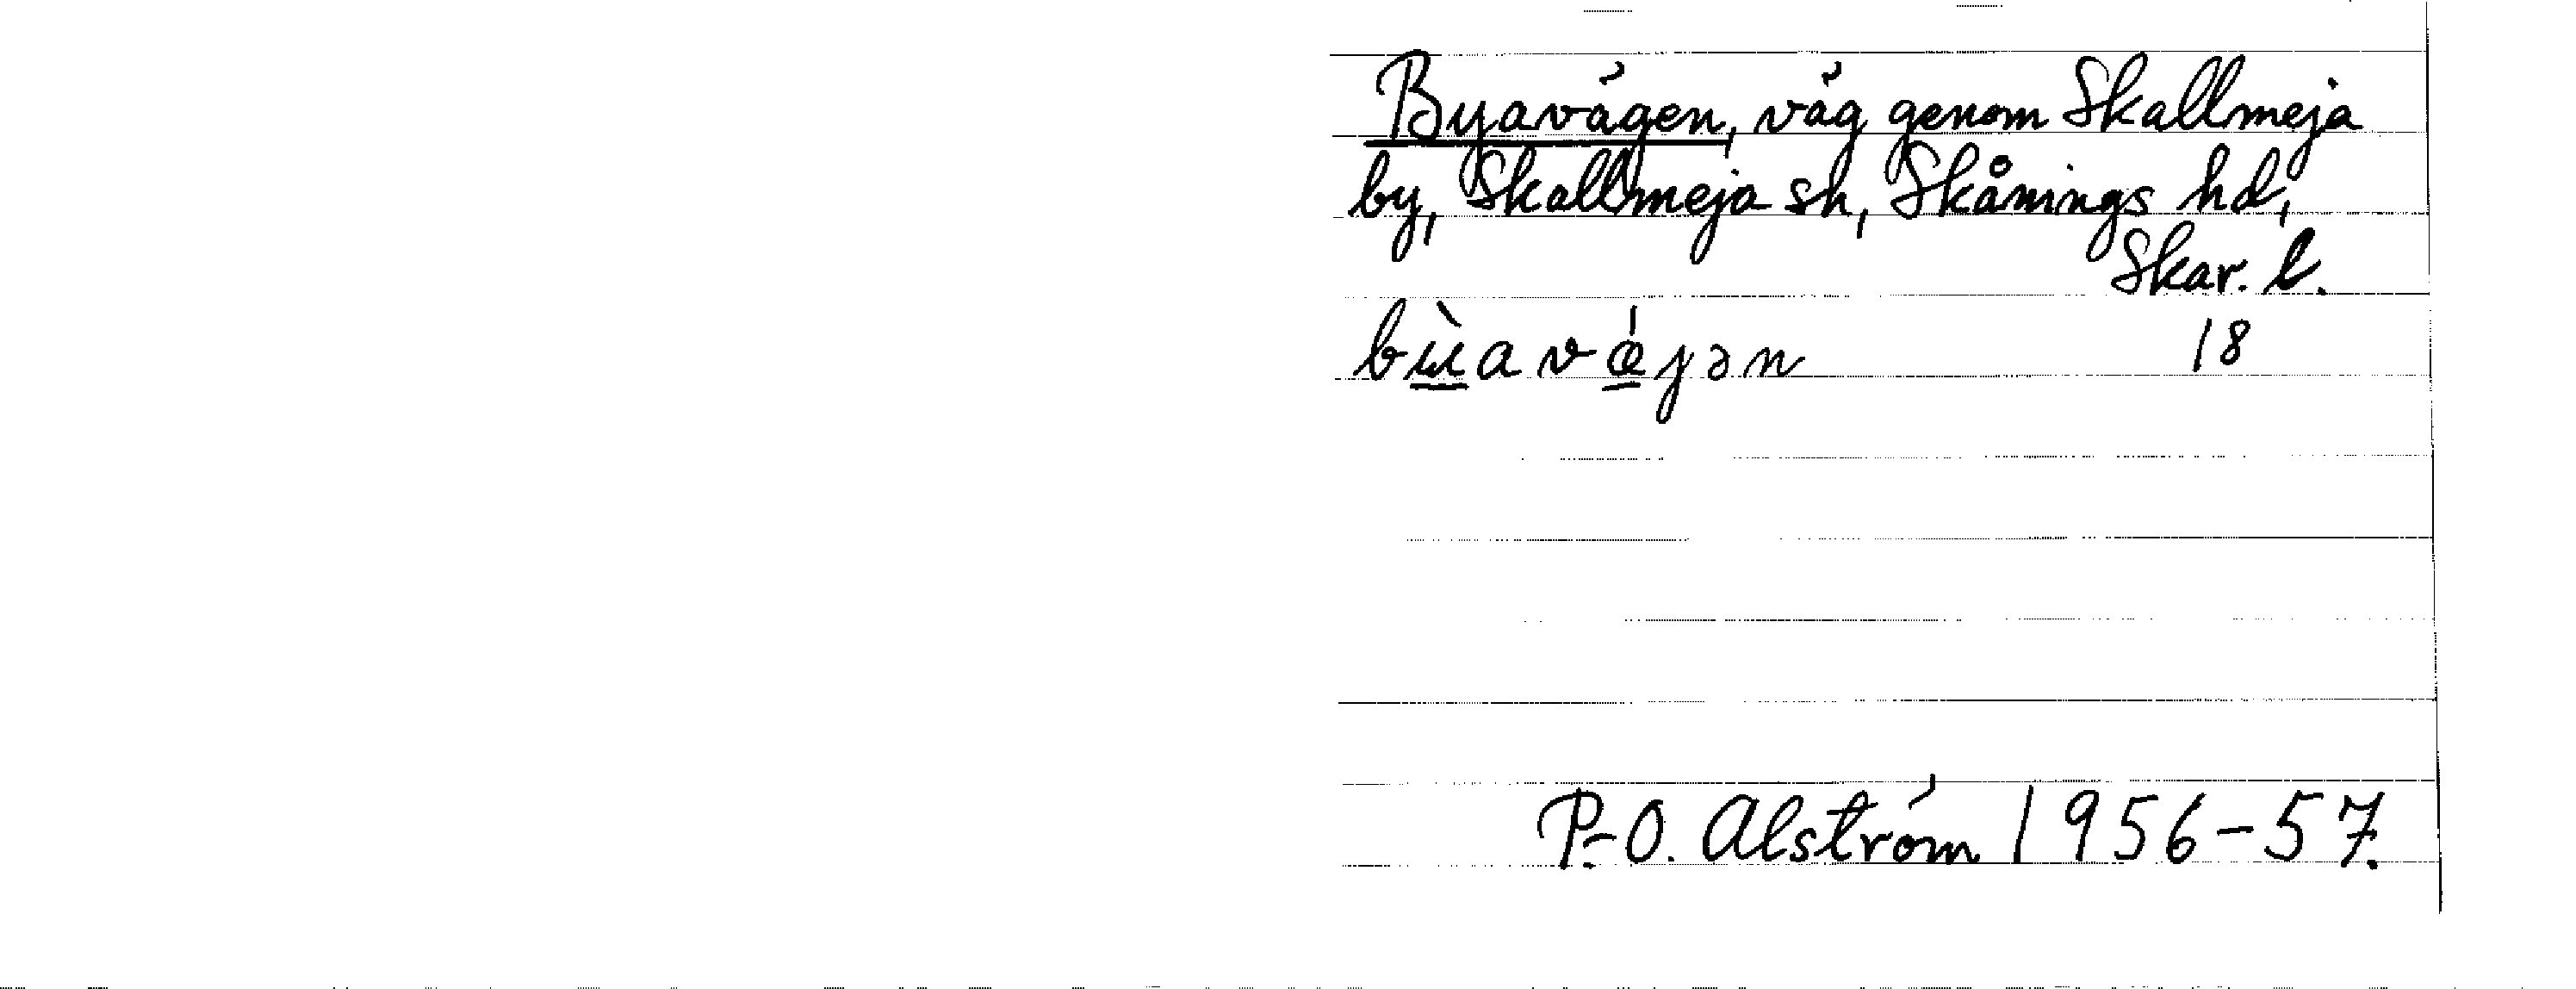 Byavägen, väg genom Skallmeja
by, Skallmeja sn, Skånings hd,
Skar. l.
bɯ̀avǽjən 18
P.-O. Alström 1956-57.